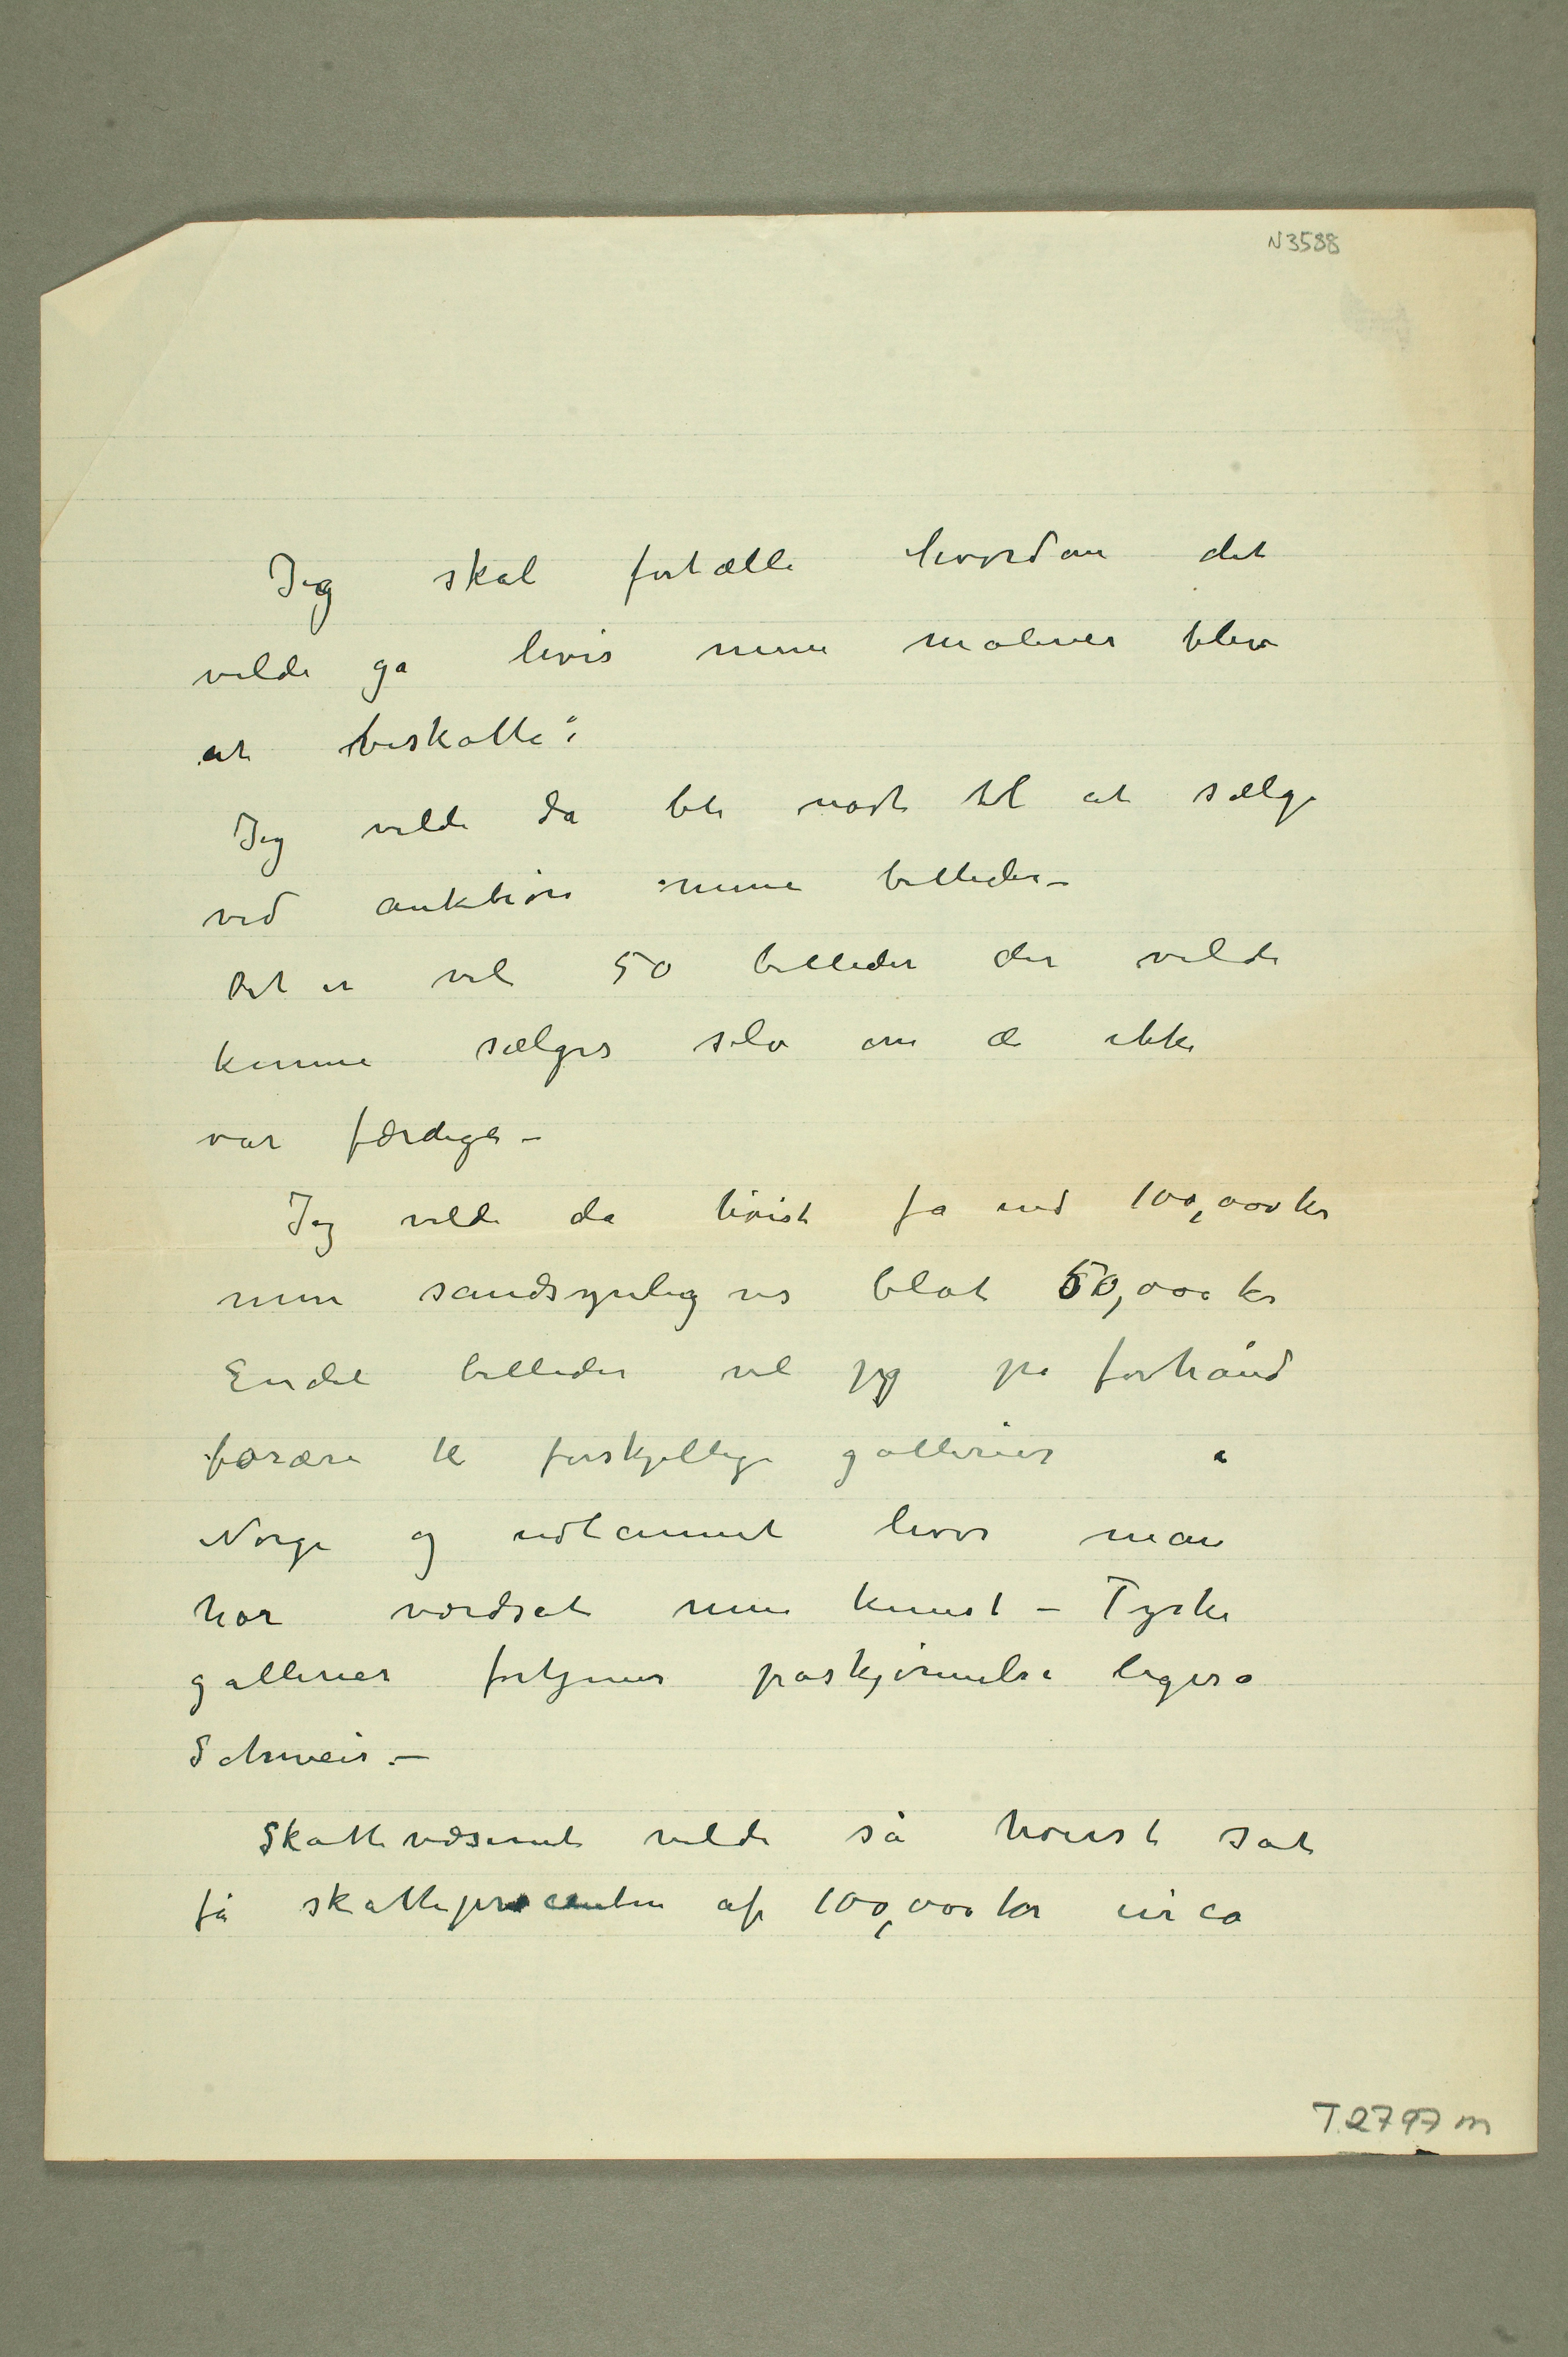 N3588
Jeg skal fortælle hvordan det
vilde gå hvis mine malerier blev
at beskatte:
Jeg vilde da bli nødt til at sælge
ved auktion mine billeder –
Det er vel 50 billeder der vilde
kunne sælges selv om de ikke
var færdige –
Jeg vilde da høist få ind 100,000 kr
men sandsynligvis blot 50,000 kr
Endel billeder vil jeg på forhånd
forære til forskjellige gallerier i
Norge og udlannet hvor man
har værdsat min kunst – Tyske
gallerier fortjener påskjønnelse ligeså
Schweis. –
Skattevæsenet vilde så høiest sat
få skatteprocenten af 100,000 kr circa
T 2797 m